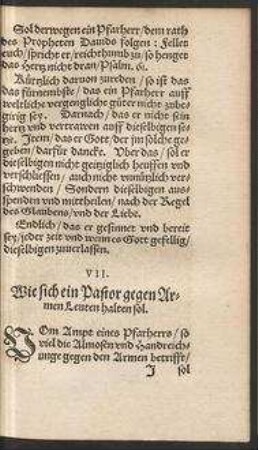 Sol derwegen ein Pfarherr/dem rath
des Propheten Dauids folgen: Fellet
euch/spricht er/reichthumb zu/so henget
das Hertz nicht dran/Psalm. 61.
Kürtzlich daruon zureden/so ist das
das fürnembste/das ein Pfarherr auff
weltliche vergengliche güter nicht zube-
girig sey. Darnach/das er nicht sein
hertz vnd vertrawen auff dieselbigen se-
tze. Item/das er Gott/der jm solche ge-
geben/darfür dancke. Vber das/sol er
dieselbigen nicht geitziglich heuffen vnd
verschliessen/auch nicht vnnützlich ver-
schwenden/Sondern dieselbigen aus-
spenden vnd mittheilen/nach der Regel
des Glaubens/vnd der Liebe.
Endlich/das er gesinnet vnd bereit
sey/jeder zeit vnd wenn es Gott gefellig/
dieselbigen zuuerlassen.
VII.
Wie sich ein Pastor gegen Ar-
men Leuten halten sol.
VOm Ampt eines Pfarherrs/so
viel die Almosen vnd Handreich-
unge gegen den Armen betrifft/
J sol